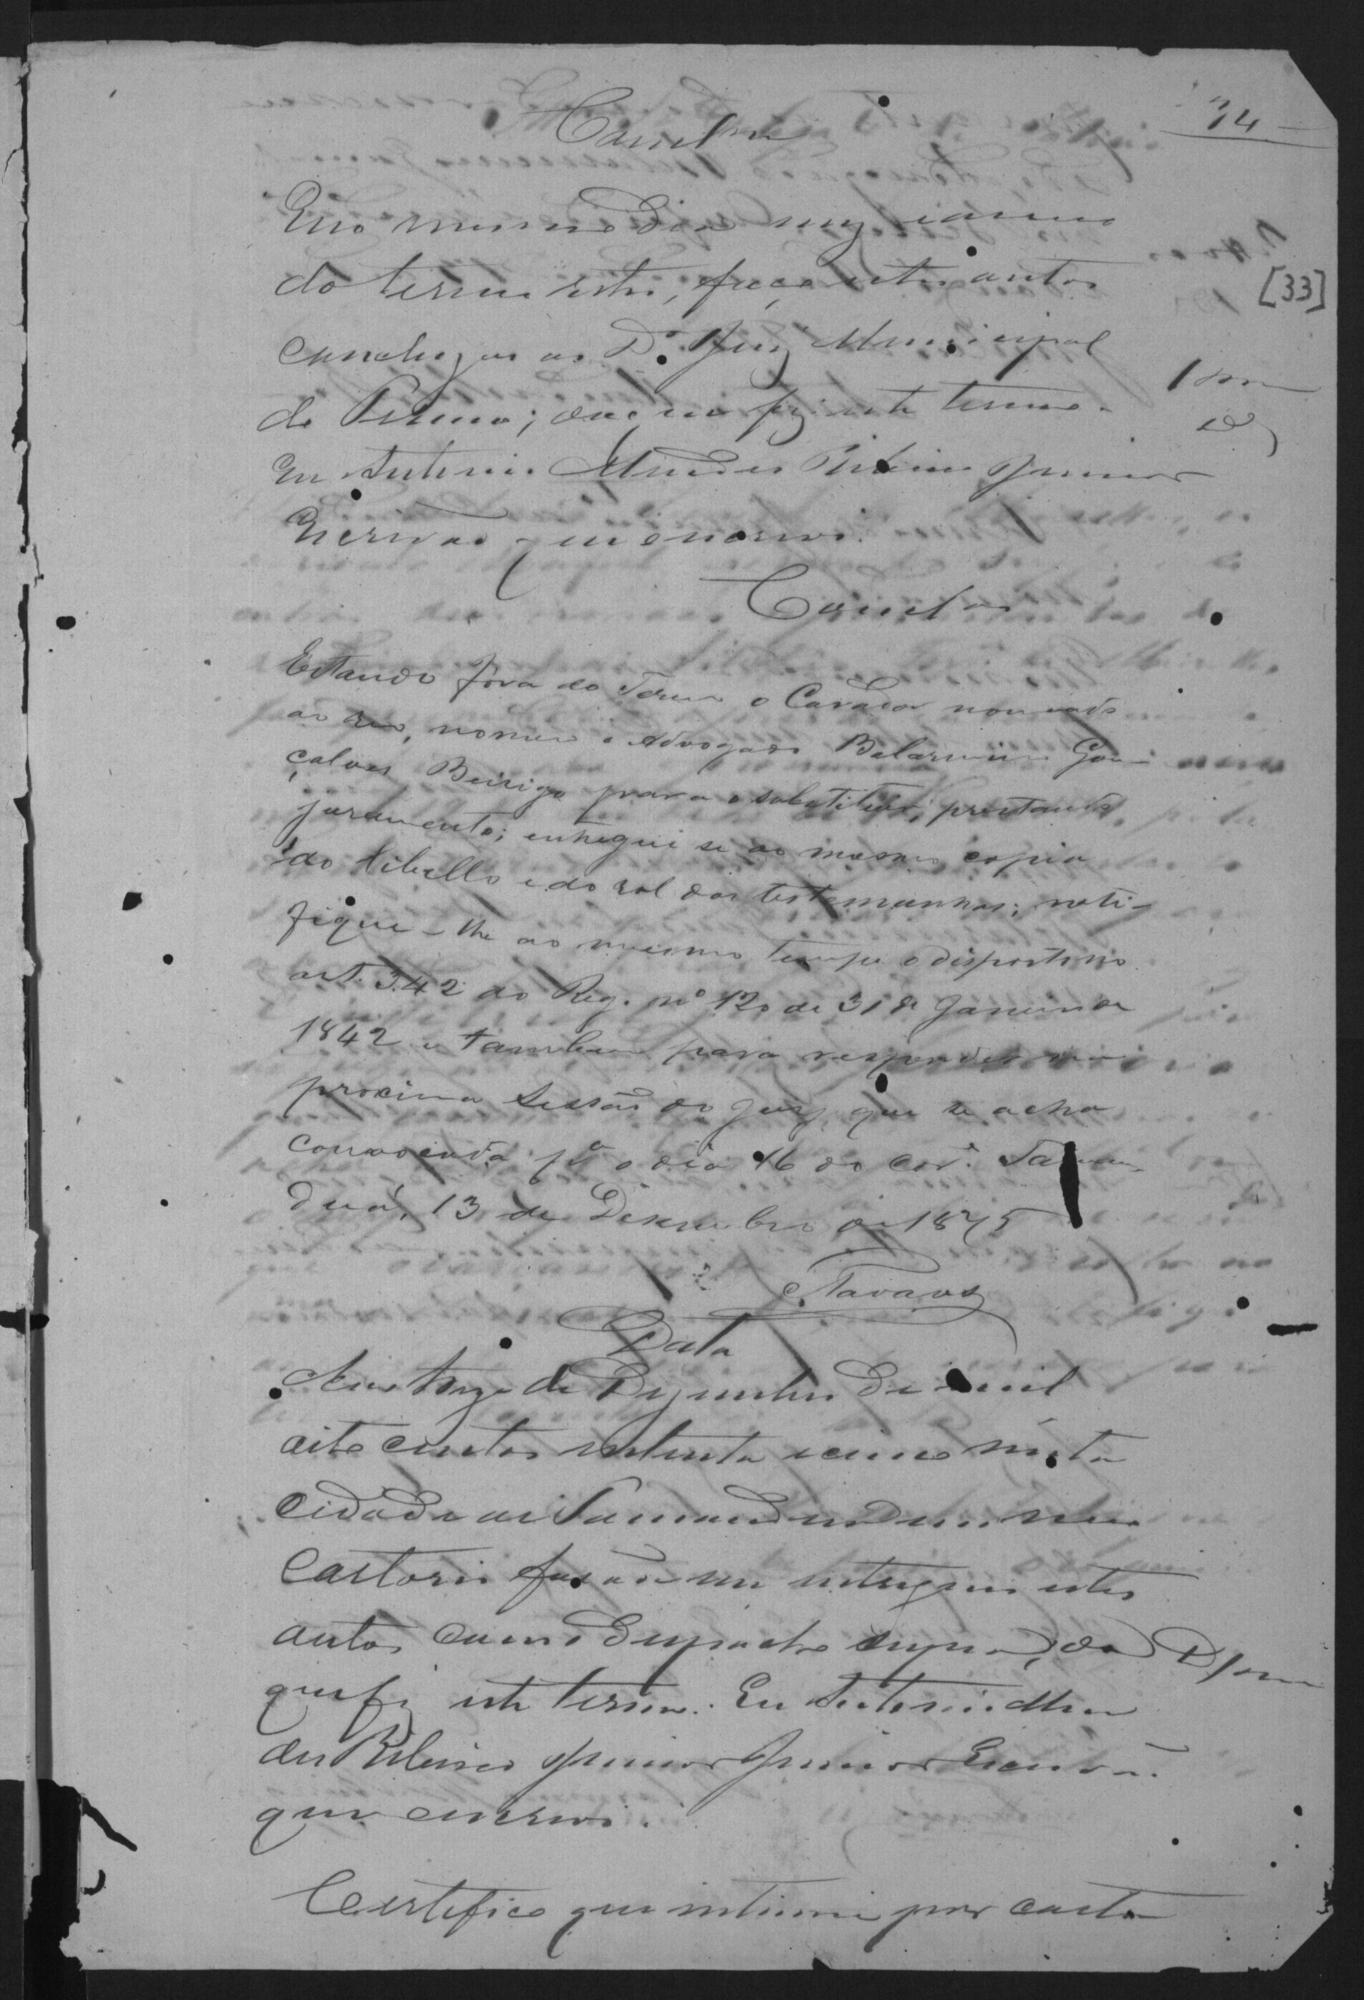 34
Concluzão
Em o mesmo dia mez e anno
do termo retro, faço estes autos
concluzos ao Dr. Juiz Municipal
do Termo; do que fiz este termo.
Eu Antonio Mendes Ribeiro Junior
Escrivão que escrevi.
[33]
Concluzos
Estando fóra do Termo o Curador nomeado
ao reo, nomeio o Advogado Belarmino Gon
çalves Beirigo para o substituir, prestando
juramento; entregue se ao mesmo copia
do libello e do rol das testemunhas; noti-
fique-lhe ao mesmo tempo o disposto no
art. 342 do Reg. nº 120 de 31 de Janeiro de
1842 e tambem para responder na
proxima sessão do Jury, que se acha
convocada pª o dia 16 do corr. Taman
duá, 13 de Dezembro de 1875
Tavares
Data
Aos treze de Dezembro de mil
oito centos setenta e cinco nésta
Cidade de Tamanduá em meu
Cartorio forão me entregues estes
autos com o despacho supra, do
que fiz este termo. Eu Antonio Men
des Ribeiro Junior Junior Escrivão
que escrevi.
Certifico que intimei por carta